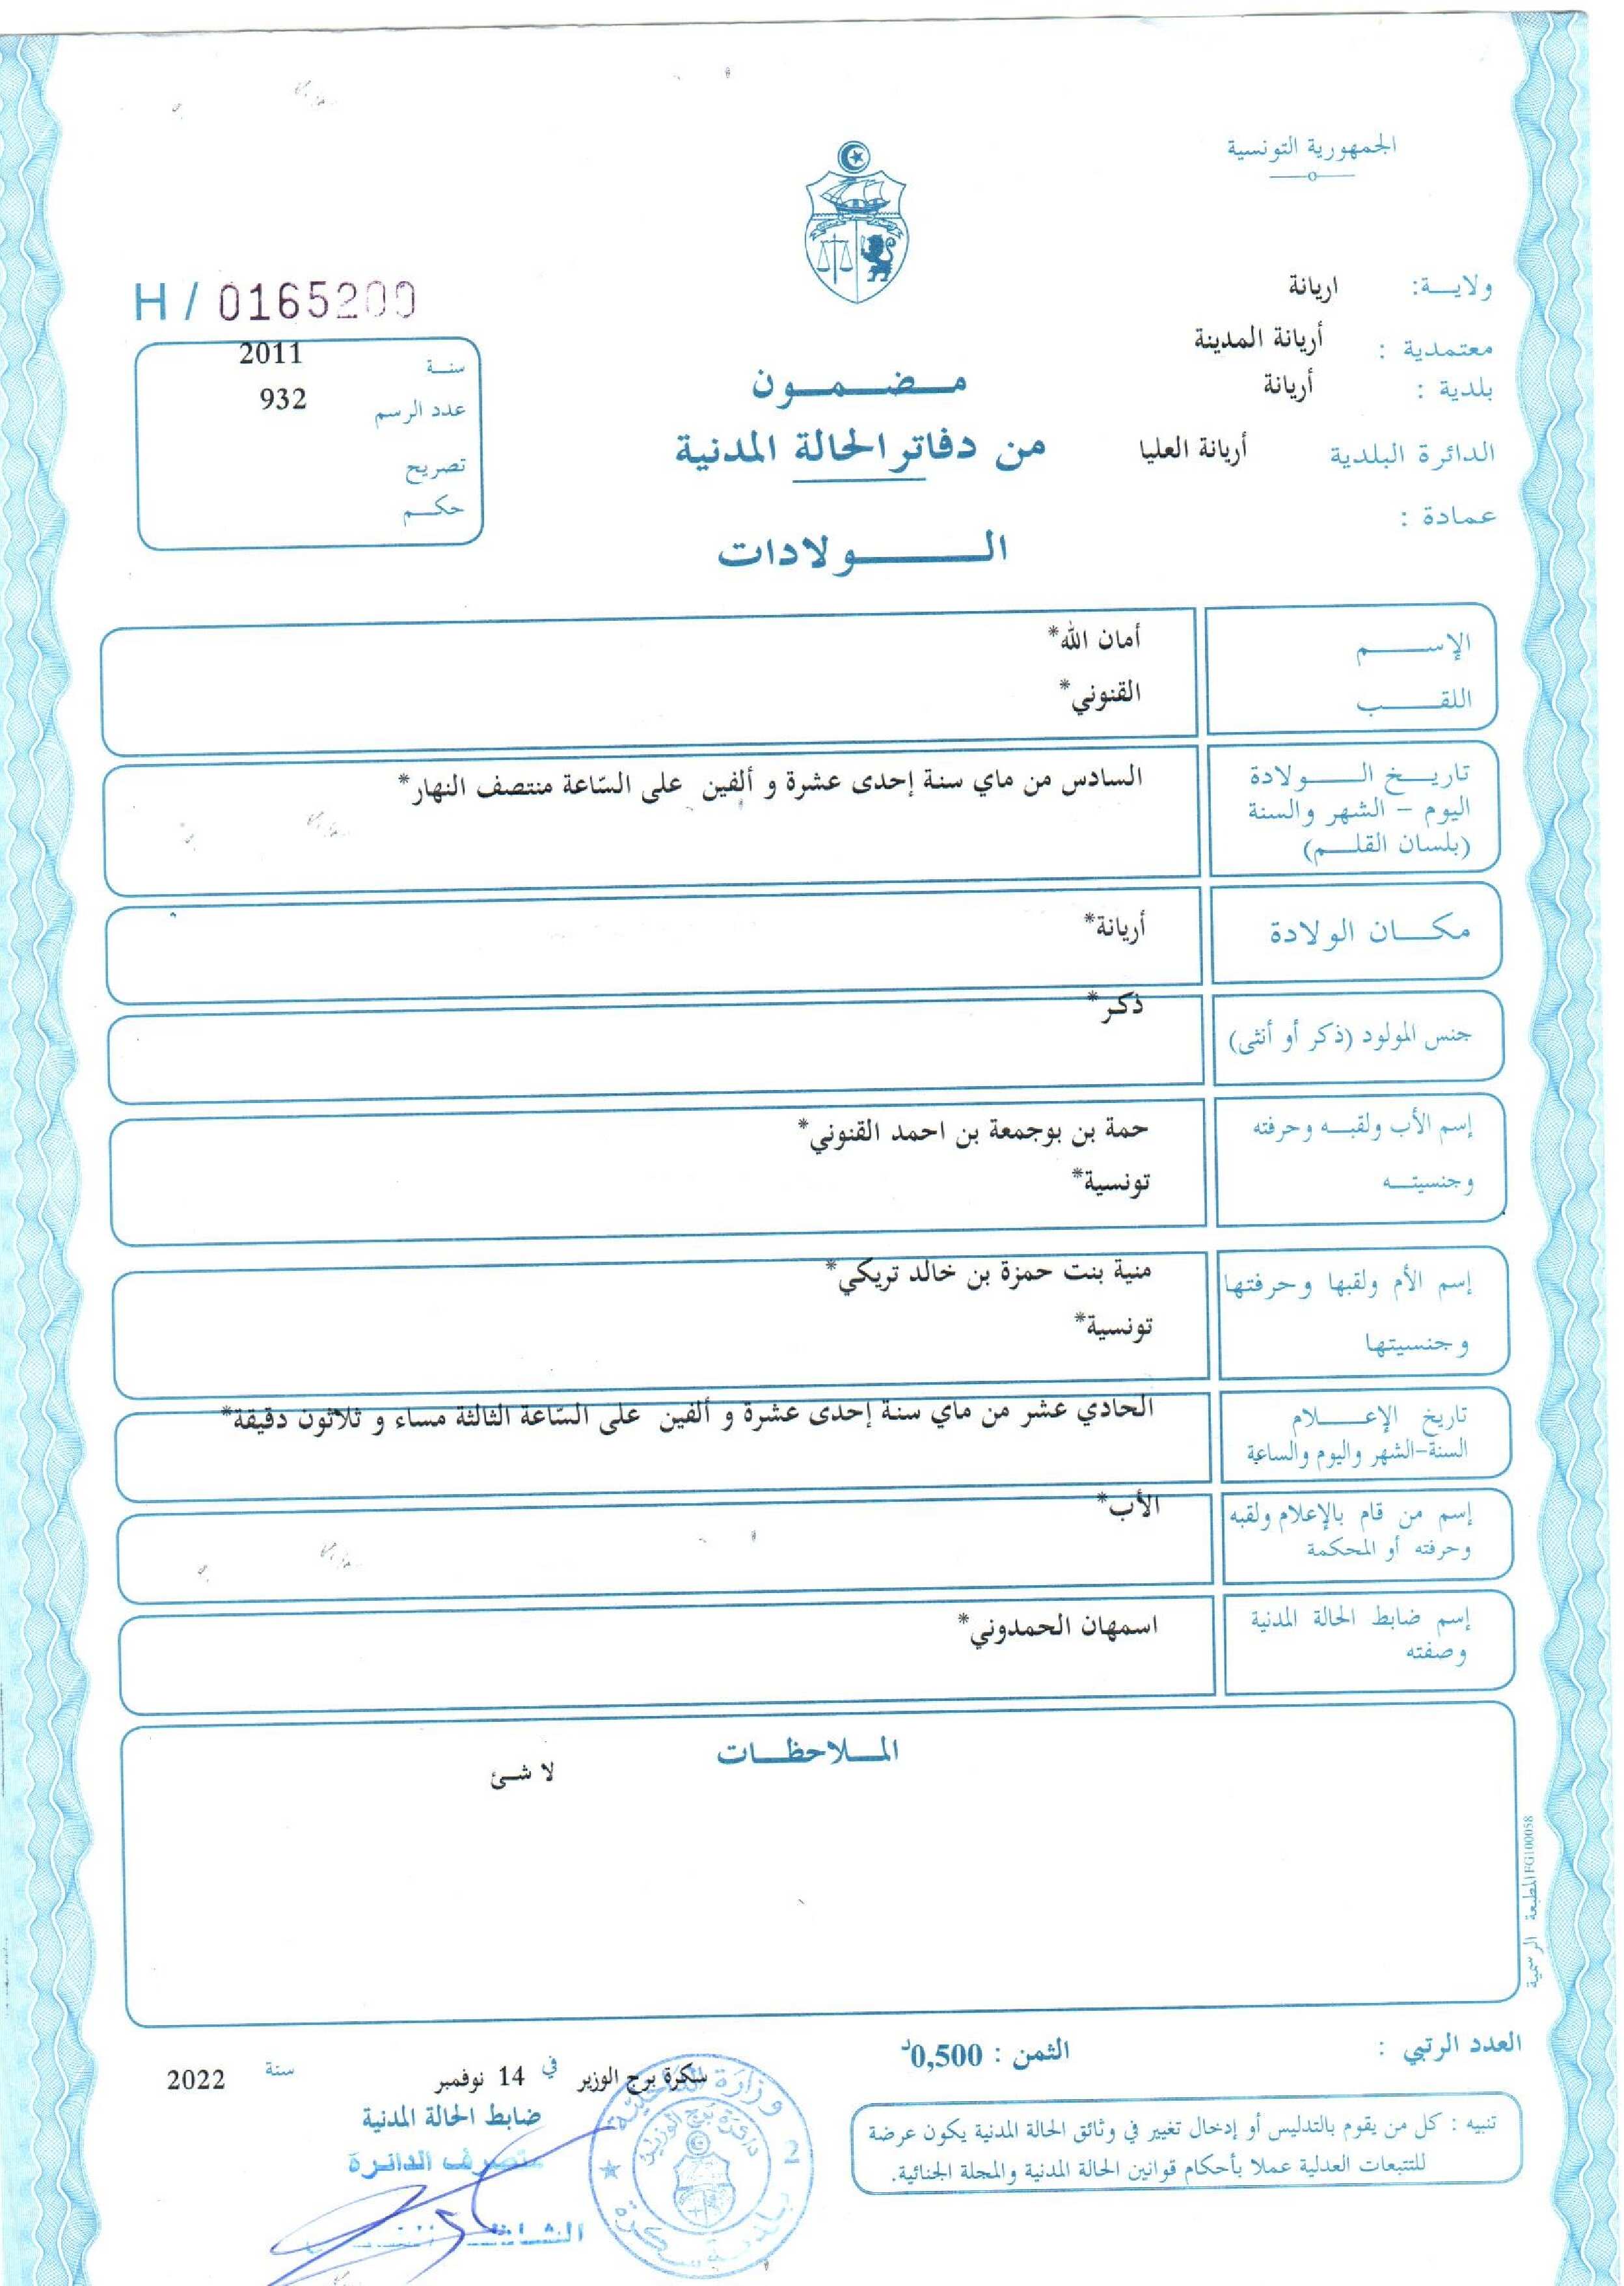 الجمهورية التونسية
ولايـــة: اريانة
معتمدية : أريانة المدينة
بلدية : أريانة
الدائرة البلدية أريانة العليا
عمادة :
H / 0165200
سنــة 2011
عدد الرسم 932
تصريح
حكــم
مـــضـــمـــون
من دفاتر الحالة المدنية
الــــــولادات
الإســــــم أمان الله*
اللقــــــب القنوني*
تاريـــخ الـــــولادة السادس من ماي سنة إحدى عشرة و ألفين على السّاعة منتصف النهار*
اليوم - الشهر والسنة
(بلسان القلـــم)
مكـــان الولادة أريانة*
جنس المولود (ذكر أو أنثى) ذكر*
إسم الأب ولقبـــه وحرفته حمة بن بوجمعة بن احمد القنوني*
وجنسيتـــه تونسية*
إسم الأم ولقبها وحرفتها منية بنت حمزة بن خالد تريكي*
وجنسيتها تونسية*
تاريخ الإعـــــلام الحادي عشر من ماي سنة إحدى عشرة و ألفين على السّاعة الثالثة مساء و ثلاثون دقيقة*
السنة-الشهر واليوم والساعة
إسم من قام بالإعلام ولقبه الأب*
وحرفته أو المحكمة
إسم ضابط الحالة المدنية اسمهان الحمدوني*
وصفته
المـــلاحظـــات
لا شئ
المطبعة الرسمية IFG100058
العدد الرتبي :
الثمن : 0,500د
سكرة برج الوزير في 14 نوفمبر سنة 2022
ضابط الحالة المدنية
متصرف الدائرة
وزارة الداخلية
دائرة برج الوزير
2
بلدية سكرة
تنبيه : كل من يقوم بالتدليس أو إدخال تغيير في وثائق الحالة المدنية يكون عرضة
للتتبعات العدلية عملا بأحكام قوانين الحالة المدنية والمجلة الجنائية.